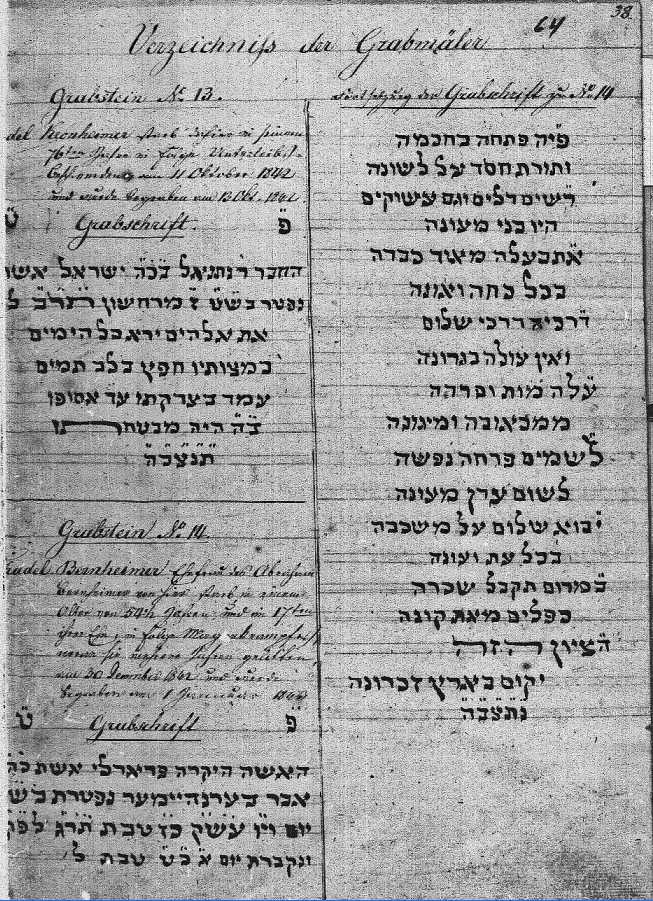 38
64
Verzeichniß der Grabmäler
Grabstein No. 13.
Kronheimer starb dahier in seinem
76ten Jahre in Folge Unterleibs-
am 11 Oktober 1842
und wurde begraben am 13 Okt. 1842.
Grabschrift.
פ ט
החבר ר נתניאל בכה ישראל אשר
נפטר בשט ז מרחשון תרג ל
את אלהים ירא כל הימים
במצותיו חפץ בלב תמים
עמד בצדקתו עד אסופו
בה היה מבטחו
תנצבה
Grabstein No. 14.
Bernheimer Ehefrau des Abraham
Bernheimer von hier starb in einem
Alter von 54 Jahren und in 17ten
ihrer Ehe, in Folge
woran sie mehrere Jahre gelitten
am 30 Dezember 1842 und wurde
begraben am 1 Januar 1843
פ ט
Grabschrift
האשה היקרה פראדלי אשת כה
אבר בערנהיימער נפטרת בשט
יום ויו עשק כז טבת תרג לפק
ונקברת יום א כט טבת ל
Fortsetzung der Grabschrift zu No. 14
פיה פתחה בחכמה
ותורת חסד על לשונה
רשים דלים וגם עשוקים
היו בני מעונה
את בעלה מאוד כבדה
בכל כחה ואונה
דרכיה דרכי שלום
ואין עולה בגרונה
עלה מות ופרהה
ממכאובה ומיגונה
לשמים פרחה נפשה
לשום עדן מעונה
יבוא שלום על משכבה
בכל עת ועונה
במרום תקבל שכרה
כפלים מאת קונה
הציון הזה
יקום בארץ זכרונה
נתצבה